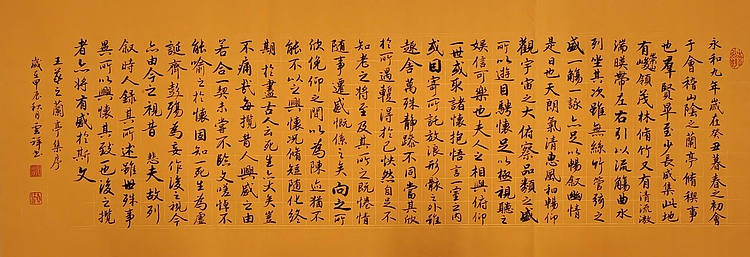 永和九年歲在癸丑暮春之初會
于會稽山陰之蘭亭脩稧事
也羣賢畢至少長咸集此地
有崇山峻領茂林脩竹又有清流激
湍暎帶左右引以流觴曲水
列坐其次雖無絲竹管弦之
盛一觴一詠亦足以暢叙幽情
是日也天朗氣清惠風和暢仰
觀宇宙之大俯察品類之盛
所以遊目騁懷足以極視聽之
娛信可樂也夫人之相與俯仰
一世或取諸懷抱悟言一室之內
或因寄所託放浪形骸之外雖
趣舍萬殊靜躁不同當其欣
於所遇蹔得於己怏然自足不
知老之將至及其所之既惓情
隨事遷感慨係之矣向之所
欣俛仰之間以為陳迹猶不
能不以之興懷況脩短隨化終
期於盡古人云死生亦大矣豈
不痛哉每攬昔人興感之由
若合一契未嘗不臨文嗟悼不
能喻之於懷固知一死生為虛
誕齊彭殤為妄作後之視今
亦由今之視昔 悲夫故列
叙時人錄其所述雖世殊事
異所以興懷其致一也後之攬
者亦將有感於斯文
王羲之蘭亭集序
歲在甲辰秋月雲祥書